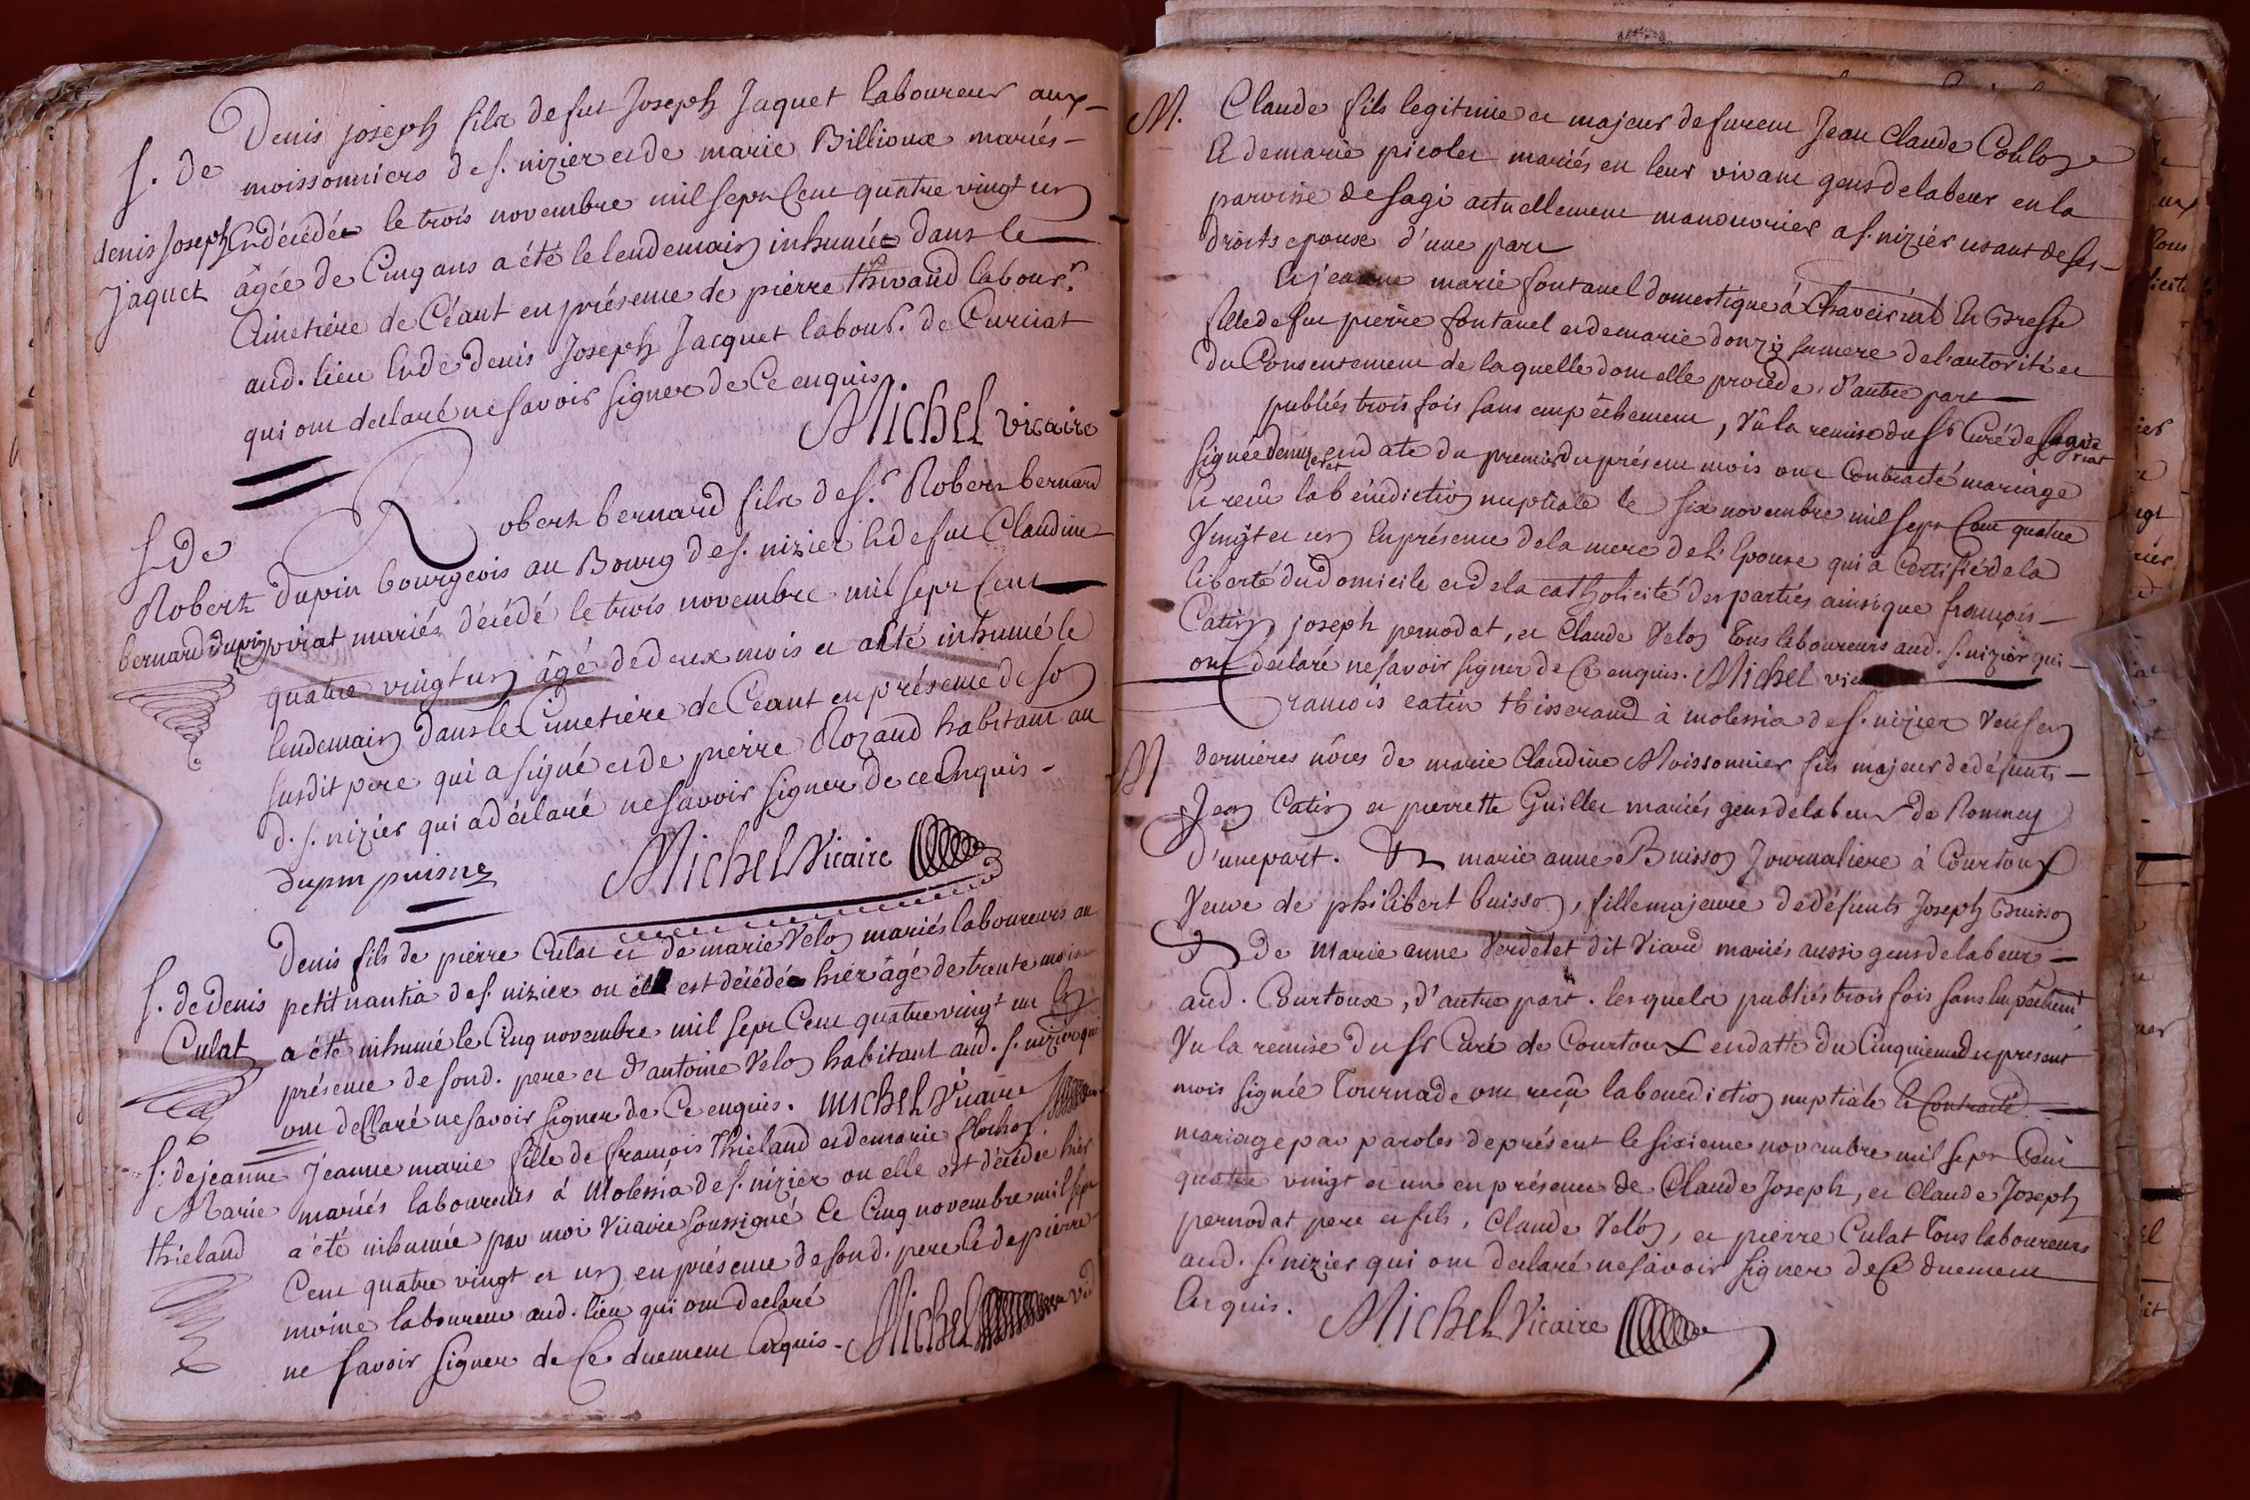 f. de
denis Joseph
Jaquet
Denis joseph fils de fut Joseph Jaquet laboureur aux
moissonniers de s. nizier et de marie Billioux mariés
En décédée le trois novembre mil sept Cent quatre vingt un
âgée de Cinq ans a été le lendemain inhumée dans le
Cimetiere de Céant en présence de pierre thivaud labourr.
aud. lieu Ende denis Joseph Jacquet labour. de Curciat
qui ont declaré ne savoir signer de Ce enquis.
Michel vicaire
S. de
Robert
bernard Dupin
Robert bernard fils de s.r Robert bernard
Dupin bourgeois au Bourg de s. nizier et de fut Claudine
voirat mariés décédé le trois novembre mil sept Cent
quatre vingt un âgé de deux mois et a été inhumé le
lendemain dans le Cimetiere de Céant en présence de son
susdit pere qui a signé et de pierre Rozand habitant au
d. s. nizier qui a déclaré ne savoir signer de ce Enquis -
dupin puisne Michel Vicaire
f. de denis
Culat
Denis fils de pierre Culat et de marie Velon mariés laboureurs au
petit nantia de s. nizier ou est décédée hier âgé de trente mois
a été inhumé le Cinq novembre mil sept Cent quatre vingt un En
présence de sond. pere et d'antoine Velon habitant aud. s. nizier qui
ont declaré ne savoir signer de Ce enquis. Michel Vicaire
f. de jeanne
Marie
thieland
Jeanne marie fille de françois thieland et de marie
mariés laboureurs á Molessia de s. nizier ou elle est décédée hier
a été inhumée par moi Vicaire soussigné Ce Cinq novembre mil sept
Cent quatre vingt et un en présence de sond. pere et de pierre
moine laboureur aud. lieu qui ont declaré
ne savoir signer de Ce duement Enquis - Michel vic
M. Claude fils legitime et majeur de furent Jean Claude Collon
et de marie picolet mariés en leur vivant gens de labeur en la
paroisse de sagi actuellement manouvrier a s. nizier usant de ses
droits epoux d'une part
Et jeanne marie fontanel domestique á En Bresse
fille de fut pierre fontanel et de marie donzy sa mere de l'autorité et
du Consentement de laquelle dont elle procede, d'autre part
publiés trois fois sans empêchement, Vû la remise du Sr Curé de
signée en date du premier du présent mois ont Contracté mariage
Et recû la bénédiction nuptiale le six novembre mil sept Cent quatre
Vingt et un En présence de la mere de l'Epouse qui a Certifié de la
liberté du domicile et de la catholicité des parties ainsi que françois
Catin joseph pernodat, et Claude Velon tous laboureurs aud. s. nizier qui
ont declaré ne savoir signer de Ce enquis. Michel vic
M françois catin thisserand à molessia de s. nizier Veuf en
dernières nôces de marie Claudine Moissonnier fils majeur de défunts
Jean Catin et pierrette Guillet mariés gens de labeur de Romney
d'une part. Et marie anne Buisson Journaliere à Courtoux
Veuve de philibert buisson, fille majeure de défunts Joseph Buisson
Et de Marie anne Verdelet dit Viard mariés aussi gens de labeur
aud. Courtoux, d'autre part. lesquels publiés trois fois sans Empêchement
Vu la remise du Sr Curé de Courtoux en datte du Cinquieme du present
mois signée Tournade ont reçu la benediction nuptiale Et Contracté
mariage par paroles de présent le sixieme novembre mil sept Cent
quatre vingt et un en présence de Claude Joseph, et Claude Joseph
pernodat pere et fils, Claude Velon, et pierre Culat tous laboureurs
aud. s. nizier qui ont declaré ne savoir signer de Ce duement
Enquis. Michel Vicaire